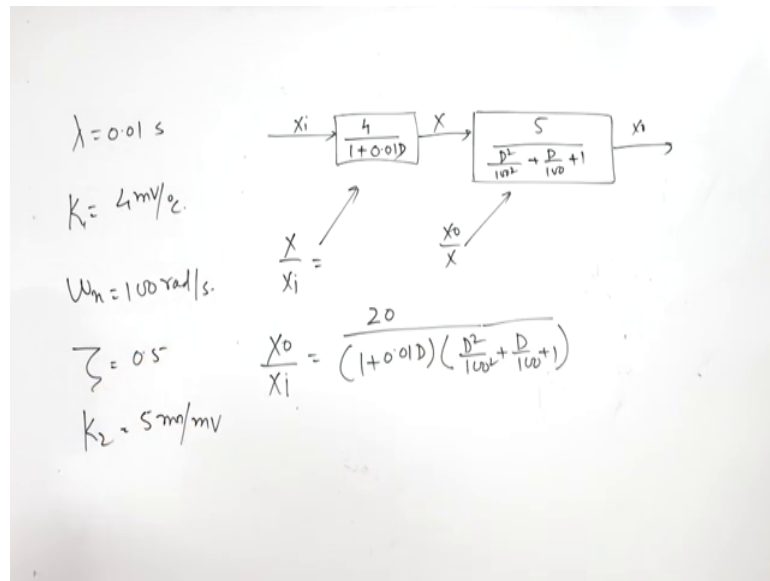 λ = 0.01 s
K = 4 mV/°C.
ωn = 100 rad/s.
ζ = 0.5
K2 = 5 mm/mV
Xi → 4 / (1 + 0.01D) → X → 5 / (D²/100² + D/100 + 1) →
X/Xi =
Xo/X
Xo/Xi = 20 / ((1 + 0.01D) (D²/100² + D/100 + 1))